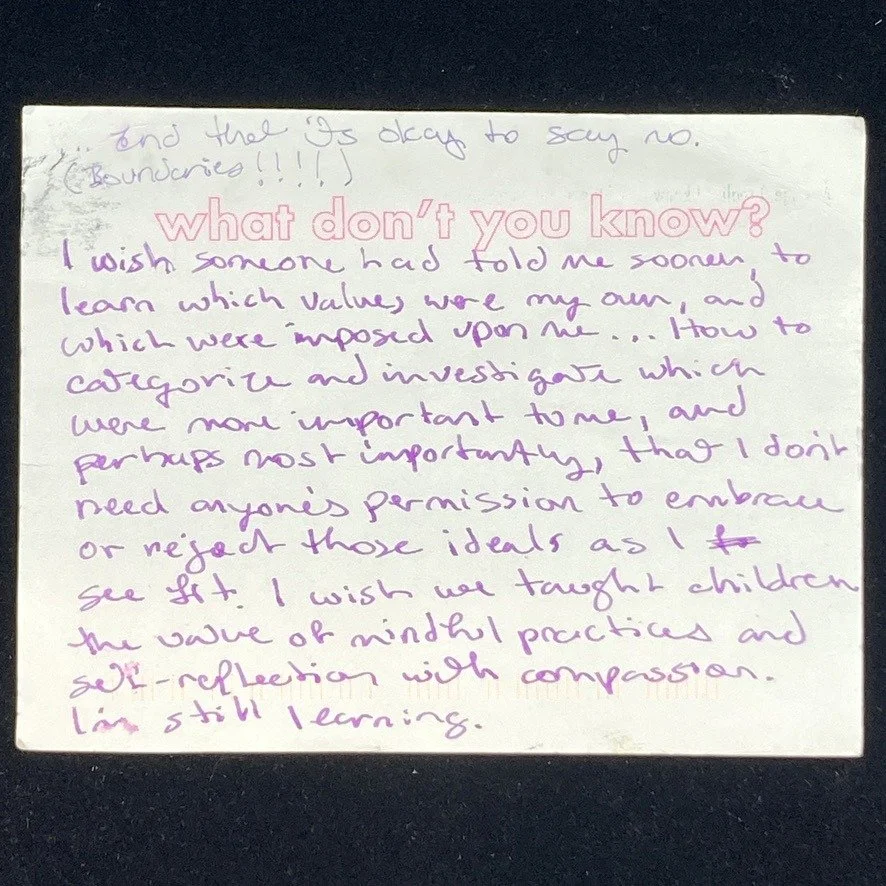 ... and that it's okay to say no.
(Boundaries!!!!!)
what don't you know?
I wish someone had told me sooner, to
learn which values were my own, and
which were imposed upon me... How to
categorize and investigate which
were more important to me, and
perhaps most importantly, that I don't
need anyone's permission to embrace
or reject those ideals as I
see fit. I wish we taught children
the value of mindful practices and
self-reflection with compassion.
I'm still learning.